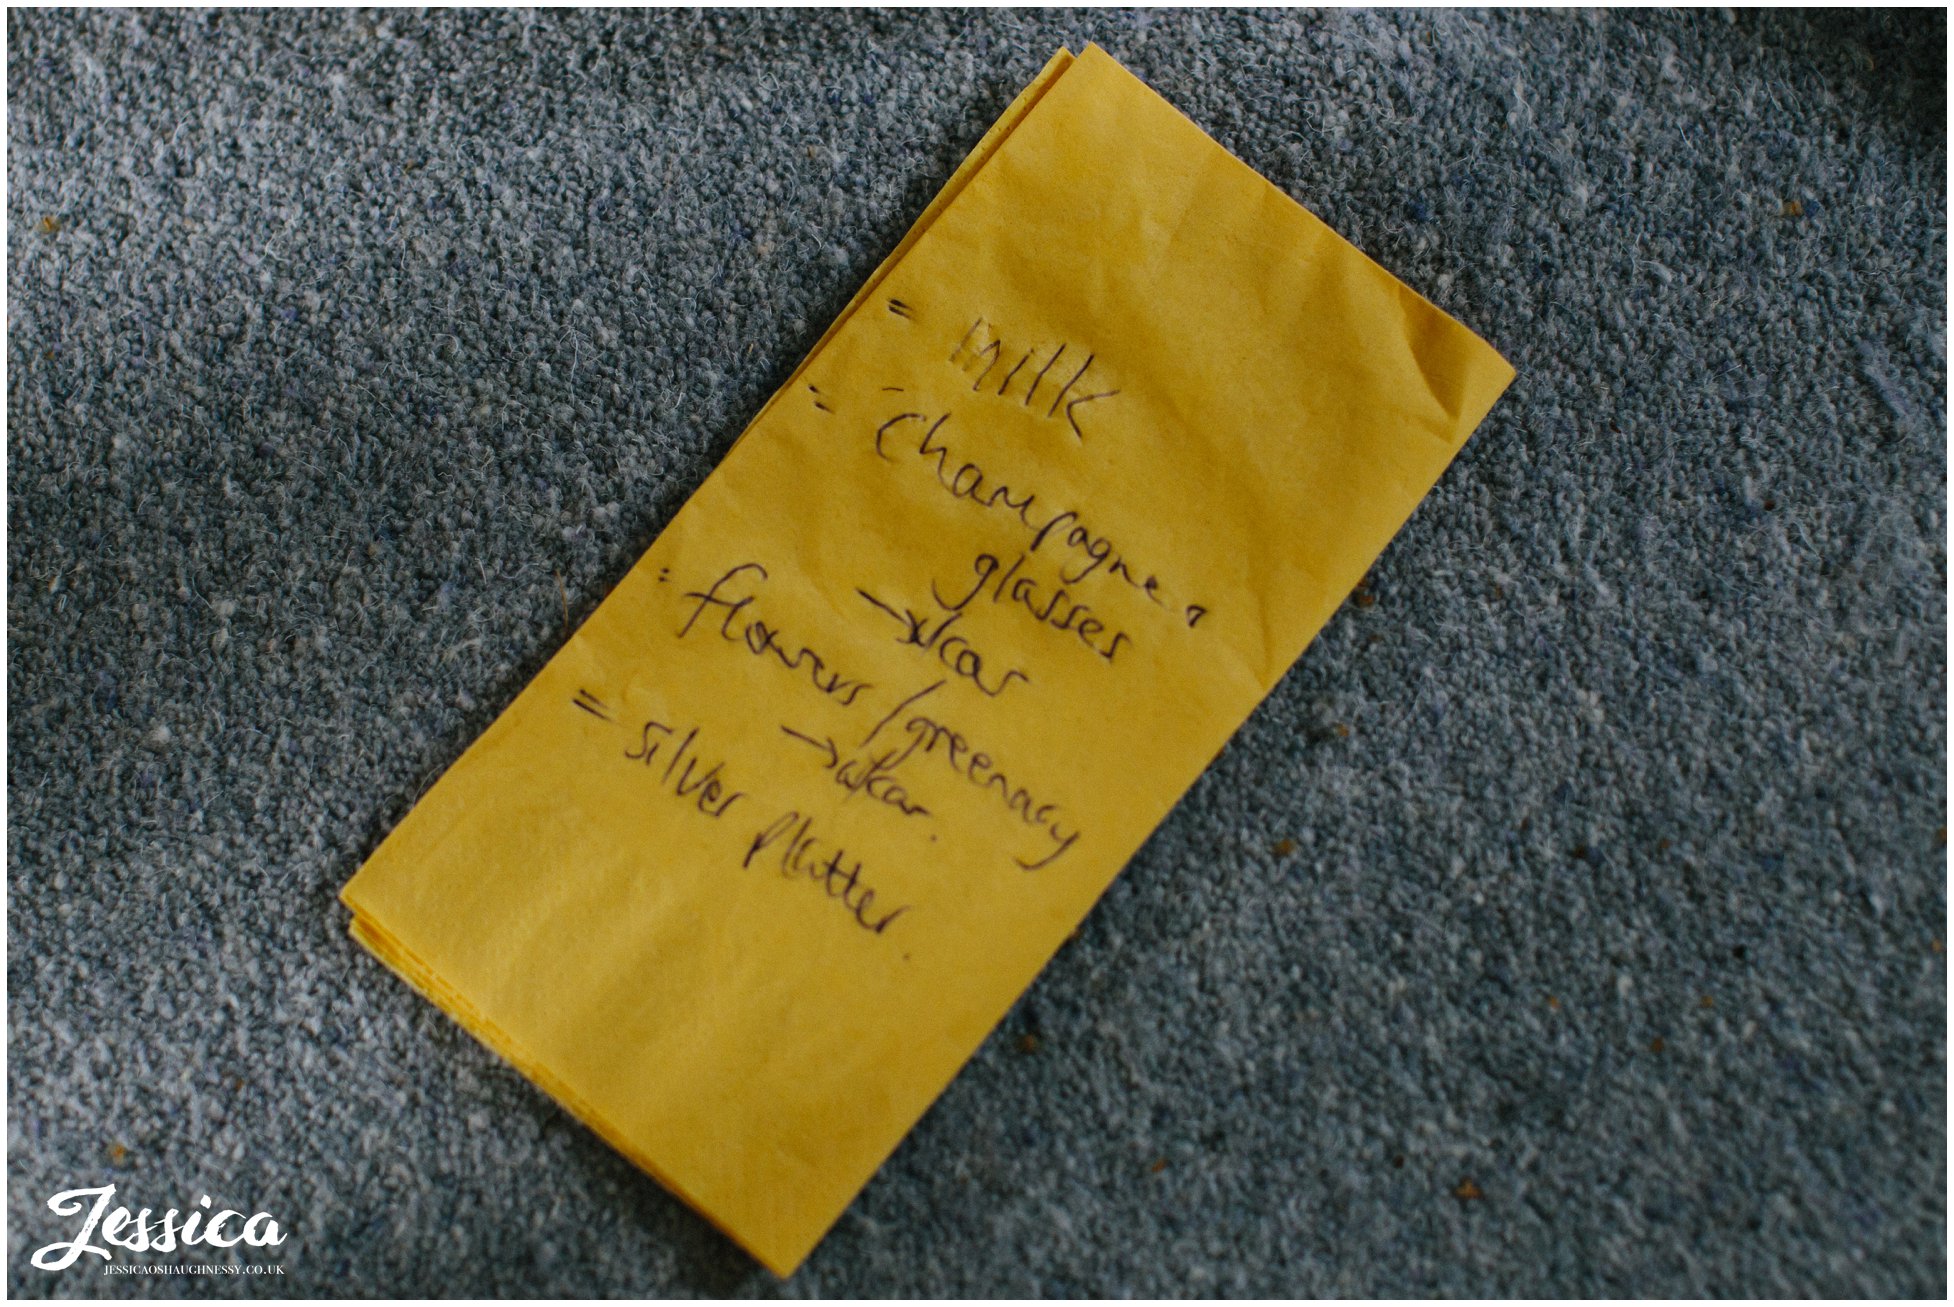 = milk
= champagne
glasses
→ car
= flowers / greenary
→ car.
= silver platter.
Jessica
JESSICAOSHAUGHNESSY.CO.UK